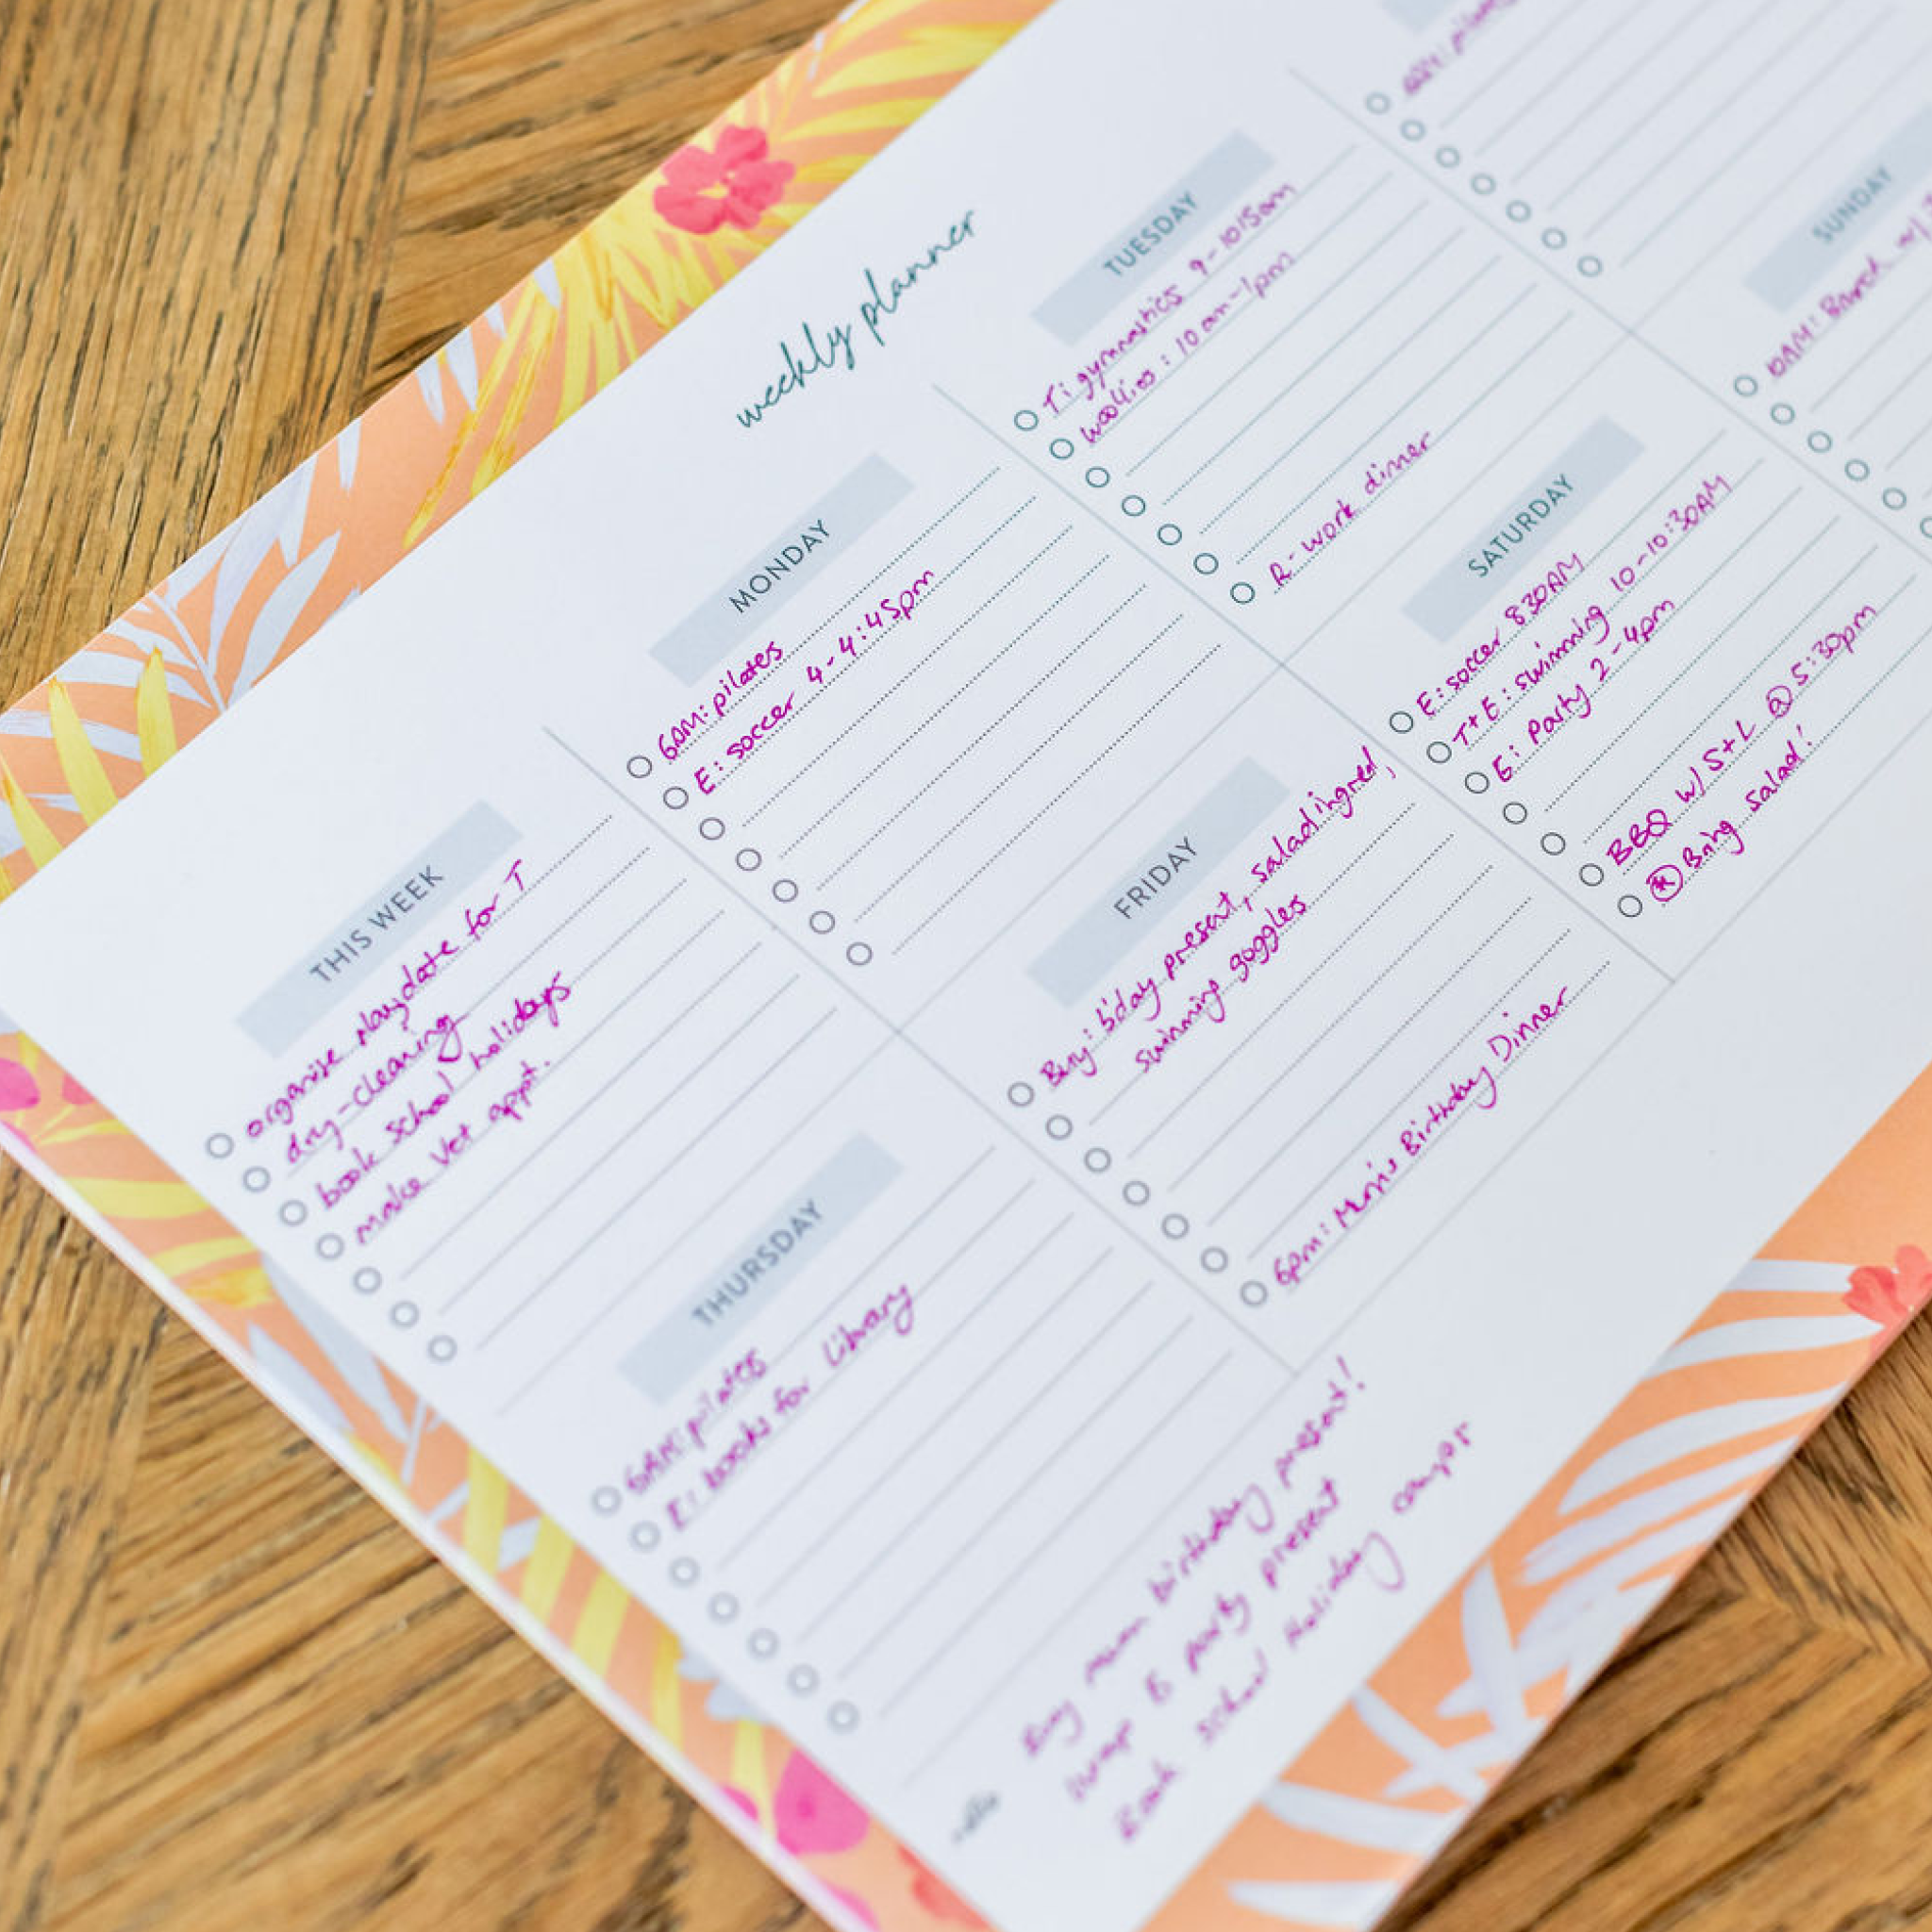 weekly planner
THIS WEEK
organise playdate for T
dry-cleaning
book school holidays
make vet appt.
MONDAY
6AM: pilates
E: soccer 4-4:45pm
TUESDAY
T: gymnastics 9-10:15am
10am-1pm
R- work dinner
THURSDAY
6AM: pilates
E: books for library
FRIDAY
Buy: b'day present, salad ingred,
swimming goggles
6pm: Mum's Birthday Dinner
SATURDAY
E: soccer 830AM
T+E: swimming 10-10:30AM
E: Party 2-4pm
BBQ w/ S+L @ 5:30pm
Bring salad!
SUNDAY
10AM: Brunch w/
Buy mum birthday present!
Wrap E party present
Book school holiday camps